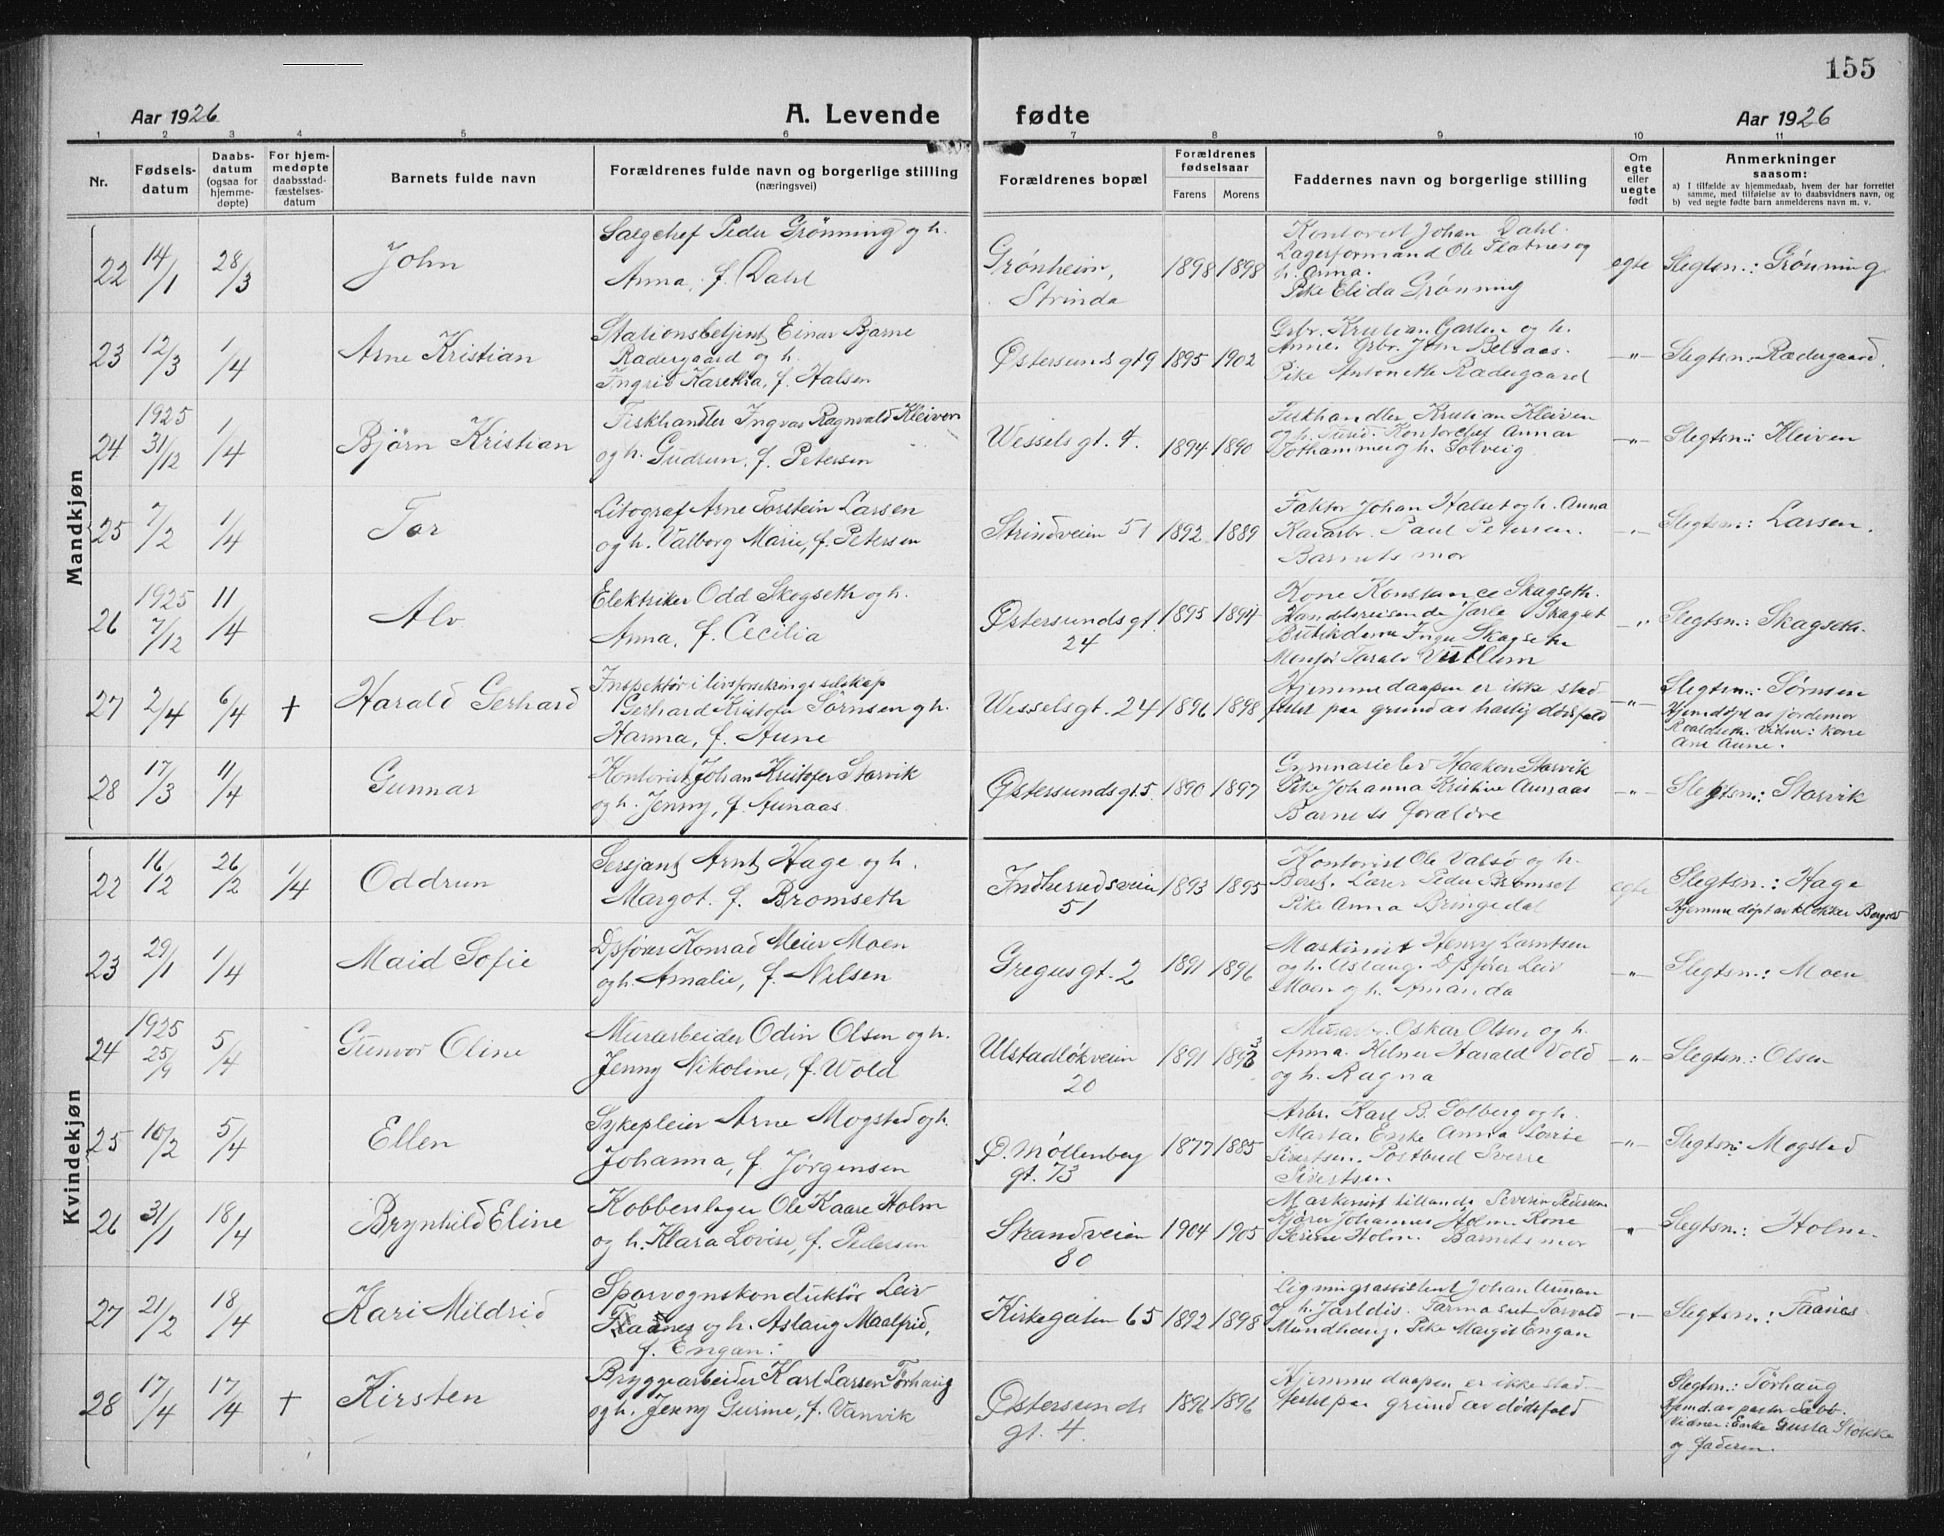 155
Aar 1926 A. Levende fødte Aar 1926
1 2 3 4 5 6 7 8 9 10 11
Nr. Fødselsdatum Daabsdatum (ogsaa for hjemmedøpte) For hjemmedøpte daabsstadfæstelsesdatum Barnets fulde navn Forældrenes fulde navn og borgerlige stilling (næringsvei) Forældrenes bopæl Forældrenes fødselsaar Farens Morens Faddernes navn og borgerlige stilling Om egte eller uegte født Anmerkninger saasom:
a) I tilfælde av hjemmedaab, hvem der har forrettet samme, med tilføielse av to daabsvidners navn, og
b) ved uegte fødte barn anmelderens navn m. v.
Mandkjøn
22 14/1 28/3 John
Salgchef Peder Grønning og h.
Anna, f. Dahl
Grønheim,
Strinda
1898 1898
Kontorist Johan Dahl.
Lagerformand Ole Flatnes og
h. Anna.
Pike Elida Grønning
egte Slegtsn.: Grønning
23 12/3 1/4 Arne Kristian
Stationsbetjent Einar Bjarne
Radergaard og h.
Ingrid Karetha, f. Halsen
Østersundsgt 9 1895 1902
Grbr. Kristian Garten og h.
Anne. Grbr. John Belsaas.
Pike Antonette Radergaard
-"- Slegtsn.: Radergaard
24 1925 31/12 1/4 Bjørn Kristian
Fiskhandler Ingvar Ragnvald Kleiven
og h. Gudrun, f. Petersen
Wesselsgt. 4. 1894 1890
Kristian Kleiven
og h. Kontorchef Annar
h. Solveig
-"- Slegtsn.: Kleiven
25 7/2 1/4 Tor
Litograf Arne Torstein Larsen
og h. Valborg Marie, f. Petersen
Strindveien 51 1892 1889
Faktor Johan Halset og h. Anna
Paul Petersen.
Barnets mor
-"- Slegtsn.: Larsen.
26 1925 7/12 11/4 Alv
Elektriker Odd Skogseth og h.
Anna, f. Cecilia
Østersundsgt.
24
1895 1894
Kone Konstance Skagseth.
Handelsreisende Jarle Skagset
Butikdame Inga Skagseth
Montør Torals Vullum
-"- Slegtsn.: Skagseth.
27 2/4 6/4 + Harald Gerhard
Inspektør i livsforsikringsselskap
Gerhard Kristofer Sørnsen og h.
Hanna, f. Aune
Wesselsgt. 24 1896 1898
Hjemmedaapen er ikke stad-
festet paa grund av hastig dødsfald
-"- Slegtsn.: Sørnsen
Hjemdøpt av jordemor
Roaldseth. Vidner: Kone
Ane Aune.
28 17/3 11/4 Gunnar
Kontorist Johan Kristofer Storvik
og h. Jenny, f. Aunaas.
Østersundsgt. 5. 1890 1897
Gymnasieelev Haaken Storvik
Pike Johanna Kristine Aunaas
Barnets forældre
-"- Slegtsn.: Storvik
Kvindekjøn
22 16/2 26/2 1/4 Oddrun
Sersjant Arnt Hage og h.
Margot. f. Bromseth
Indherredsveien
51
1893 1895
Kontorist Ole Valsø og h.
Beret. Lærer Peder Bromset
Pike Anna Bringedal
egte Slegtsn.: Hage
Hjemmedøpt av klokker
23 29/1 1/4 Maid Sofie
Dpfører Konrad Meier Moen
og h. Amalie, f. Nilsen
Gregusgt. 2 1891 1896
Maskinist Henry Larntsen
og h. Aslaug. Dpfører Leiv
Moen og h. Amanda
-"- Slegtsn.: Moen
24 1925 25/9 5/4 Gunvor Oline
Murarbeider Odin Olsen og h.
Jenny Nikoline, f. Wold
Ulstadløkveien
20
1891 1893
Oskar Olsen og h.
Anna. Kelner Harald Vold
og h. Ragna
-"- Slegtsn.: Olsen
25 10/2 5/4 Ellen
Sykepleier Arne Mogstad og h.
Johanna, f. Jørgensen
Ø. Møllenberg
gt. 73
1877 1885
Arbr. Karl B. Solberg og h.
Marta. Enke Anna Lovise
Sivertsen. Postbud Sverre
Sivertsen
-"- Slegtsn.: Mogstad
26 31/1 18/4 Brynhild Eline
Kobberslager Ole Kaare Holm
og h. Klara Lovise, f. Pedersen
Strandveien
80
1904 1905
Maskinist tillands Severin Pedersen
Johannes Holm. Kone
Serine Holm. Barnets mor
" Slegtsn.: Holm.
27 21/2 18/4 Kari Mildrid
Sporvognskonduktør Leiv
Faanes og h. Aslaug Maalfrid,
f. Engan.
Kirkegaten 65 1892 1898
Ligningsassistent Johan Aunan
og h. Jarldis. Torvald
Mundhaug. Pike Margit Engan
-"- Slegtsn.: Faanes.
28 17/4 17/4 + Kirsten
Bryggearbeider Karl Larsen Tørhaug
og h. Jenny Gurine, f. Vanvik
Østersunds
gt. 4.
1896 1896
Hjemmedaapen er ikke stad-
festet paa grund av dødsfald
Slegtsn.: Tørhaug
Hjemd. av pastor
Vidner: Enke Gusta Stokke
og faderen.